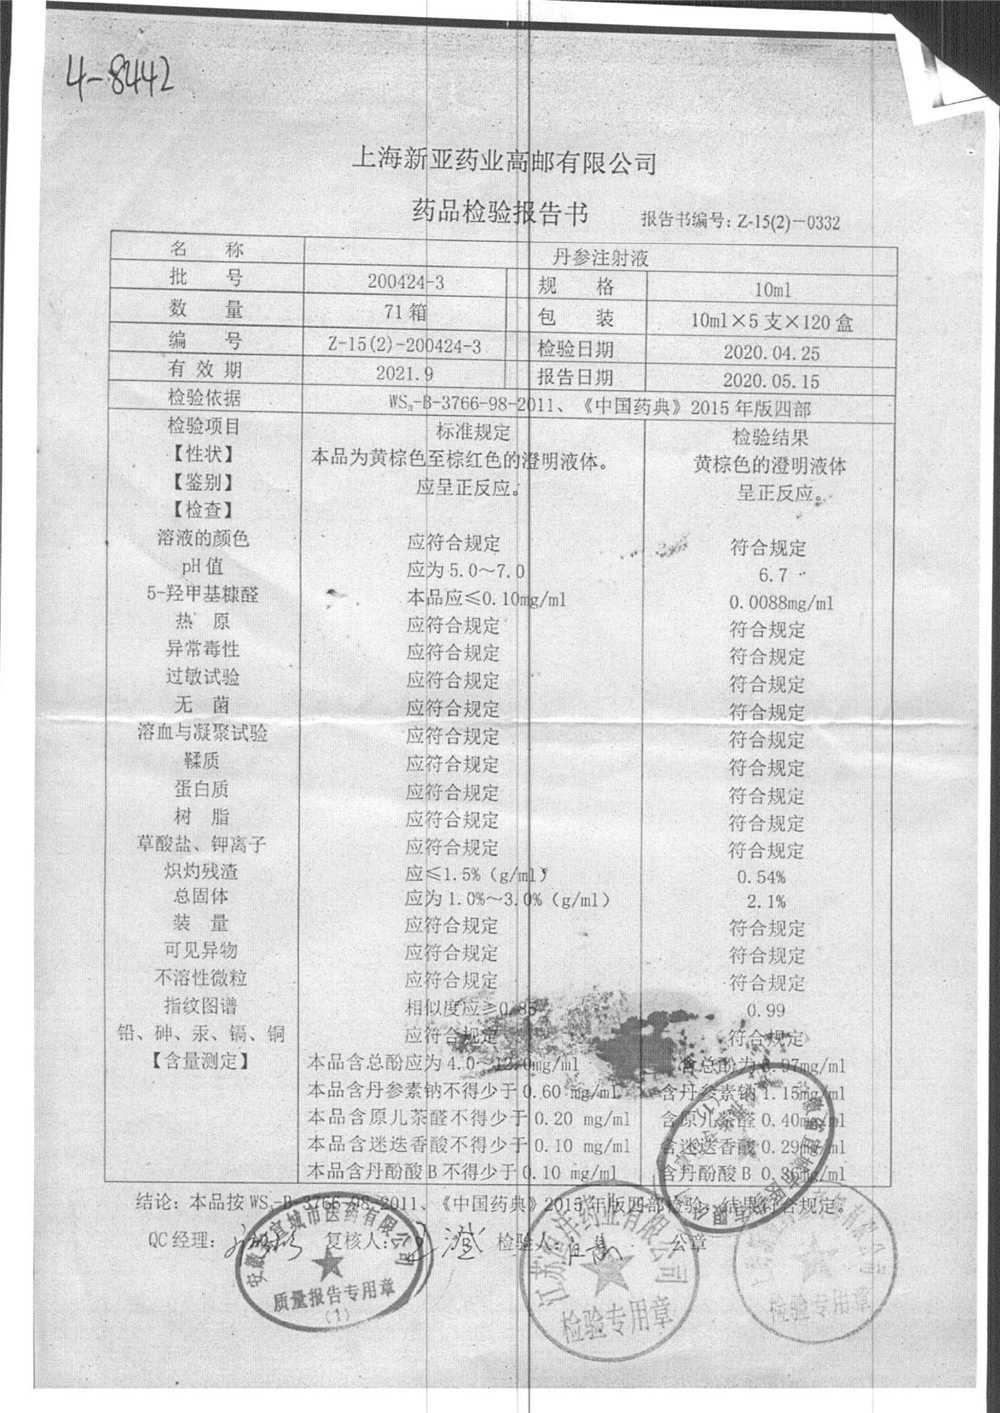 4-8442
上海新亚药业高邮有限公司
药品检验报告书 报告书编号: Z-15(2)-0332
名 称 丹参注射液
批 号 200424-3 规 格 10ml
数 量 71箱 包 装 10ml×5支×120盒
编 号 Z-15(2)-200424-3 检验日期 2020.04.25
有效期 2021.9 报告日期 2020.05.15
检验依据 WS₃-B-3766-98-2011、《中国药典》2015年版四部
检验项目 标准规定 检验结果
【性状】 本品为黄棕色至棕红色的澄明液体。 黄棕色的澄明液体
【鉴别】 应呈正反应。 呈正反应。
【检查】
溶液的颜色 应符合规定 符合规定
pH值 应为5.0~7.0 6.7
5-羟甲基糠醛 本品应≤0.10mg/ml 0.0088mg/ml
热 原 应符合规定 符合规定
异常毒性 应符合规定 符合规定
过敏试验 应符合规定 符合规定
无 菌 应符合规定 符合规定
溶血与凝聚试验 应符合规定 符合规定
鞣质 应符合规定 符合规定
蛋白质 应符合规定 符合规定
树 脂 应符合规定 符合规定
草酸盐、钾离子 应符合规定 符合规定
炽灼残渣 应≤1.5%（g/ml） 0.54%
总固体 应为1.0%~3.0%（g/ml） 2.1%
装 量 应符合规定 符合规定
可见异物 应符合规定 符合规定
不溶性微粒 应符合规定 符合规定
指纹图谱 相似度应≥0.85 0.99
铅、砷、汞、镉、铜 应符合规定 符合规定
【含量测定】 本品含总酚应为4.0~12.0mg/ml 含总酚为 .97mg/ml
本品含丹参素钠不得少于0.60 mg/ml 含丹参素钠1.15mg/ml
本品含原儿茶醛不得少于0.20 mg/ml 含原儿茶醛 0.40mg/ml
本品含迷迭香酸不得少于0.10 mg/ml 含迷迭香酸0.29mg/ml
本品含丹酚酸B不得少于0.10 mg/ml 含丹酚酸B 0.36mg/ml
结论: 本品按WS₃-B-3766-98-2011、《中国药典》2015年版四部检验，结果符合规定。
QC经理: 复核人: 检验人: 公章
安徽宣城市医药有限公司
质量报告专用章
(1)
江苏 药业有限公司
检验专用章
有限公司
检验专用章